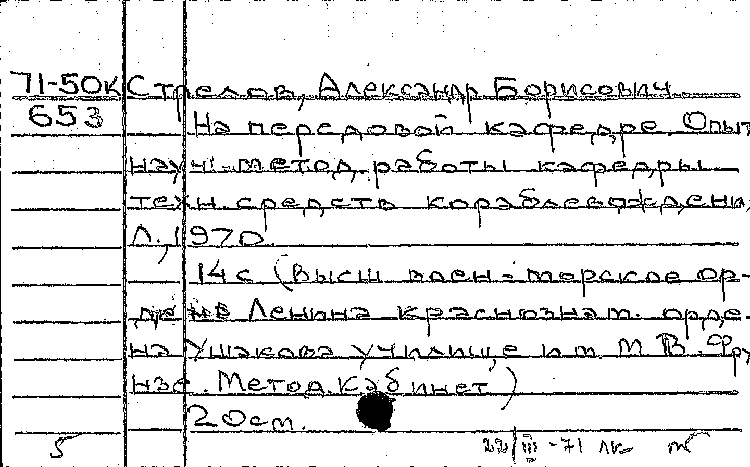 71-50к Стрелов, Александр Борисович
653 На передовой кафедре. Опыт
науч.-метод. работы кафедры
техн. средств кораблевождени
Л., 1970.
14 с (Высш воен-морское ор-
дена Ленина краснознам. орде-
на Ушакова училище им М В. Фру
нзе. Метод. кабинет)
20 см.
5 22/III-71